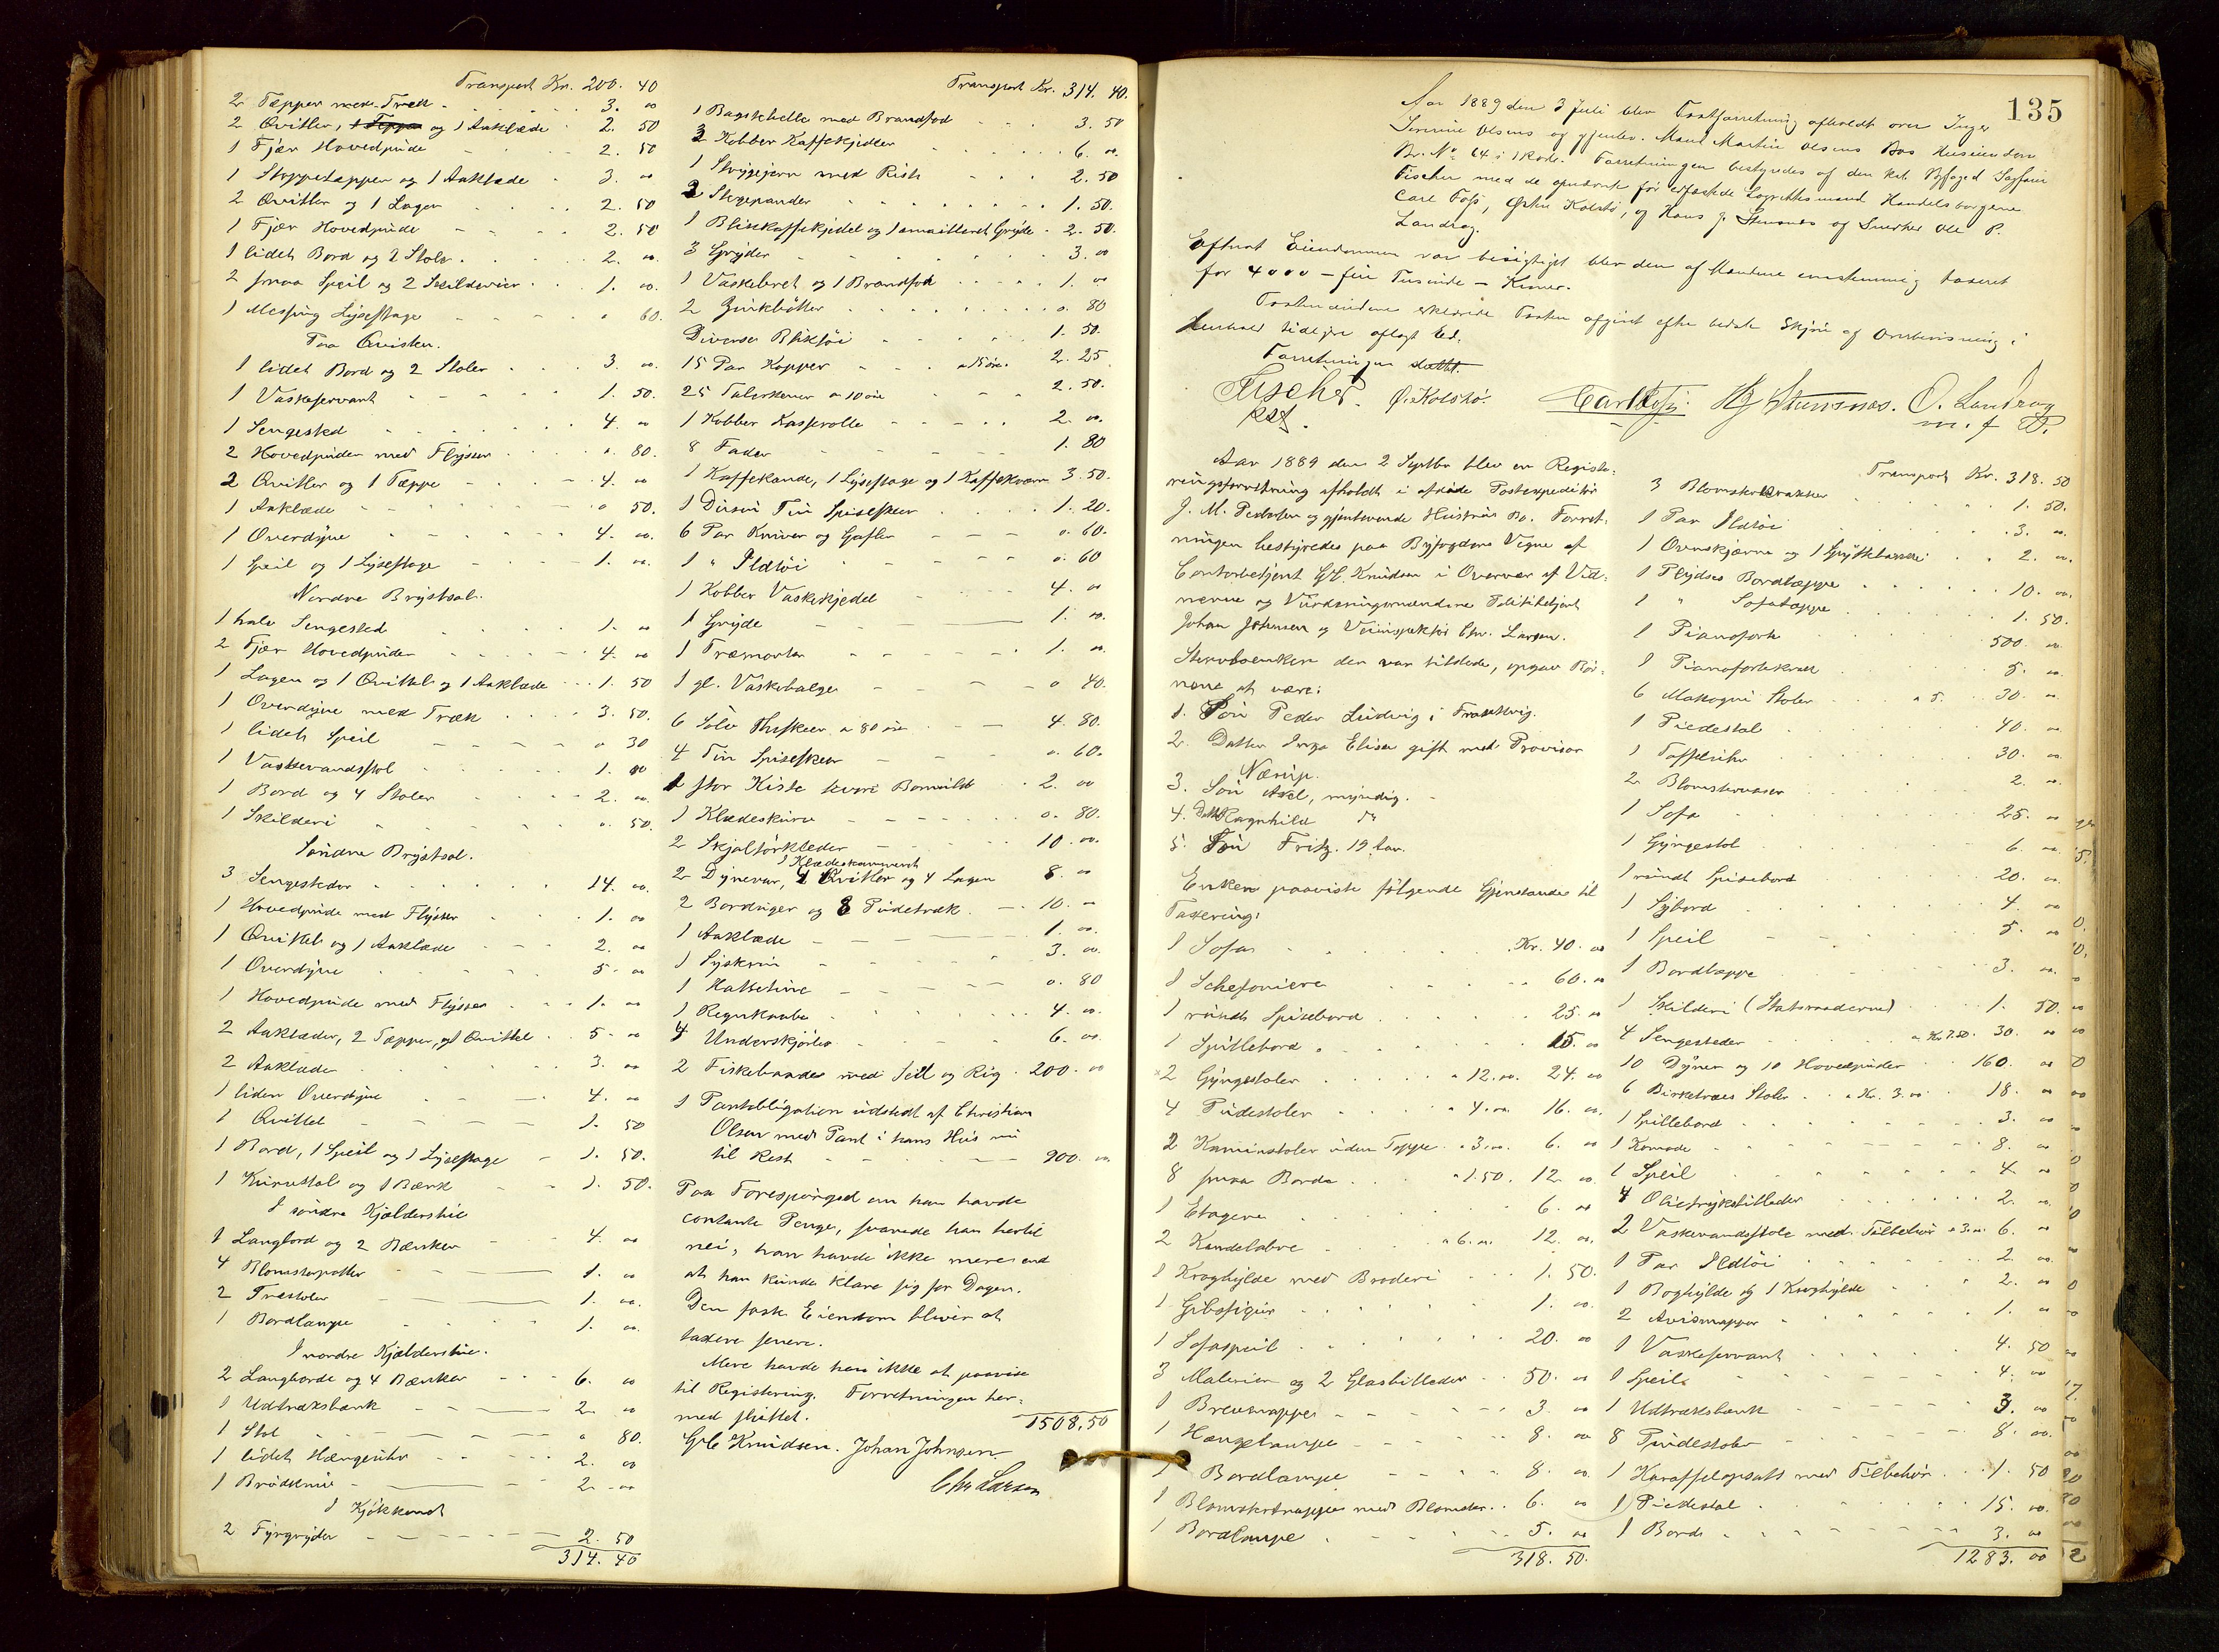 Transport Kr. 200. 40
2 Tæpper med Træk 3. 00
2 Qvitler, 1 Teppe og 1 Aaklæde 2. 50
1 Fjær Hovedpude 2. 50
1 Stoppetæpper og 1 Aaklæde 3. 00
2 Qvitler og 1 Lagen 2. 50
1 Fjær Hovedpude 2. 50
1 lidet Bord og 2 Stole 2. 00
2 smaa Speil og 2 Skilderier 1. 00.
1 Messing Lysestage " 60.
Paa Qvisten.
1 lidet Bord og 2 Stoler 3. 00.
1 Vaskeservant 1. 50.
1 Sengested 4. 00
2 Hovedpuder med Flyser " 80.
2 Qvitler og 1 Tæppe 4. 00
1 Aaklæde 0 50.
1 Overdyne 4. 00.
1 Speil og 1 Lysestage 1. 00.
Nordre Brystsal.
1 halv Sengested 1. 00
2 Fjær Hovedpuder 4. 00
1 Lagen og 1 Qvittel og 1 Aaklæde 1. 50
1 Overdyne med Træk 3. 50.
1 lidet Speil 0 30
1 Vaskevandsstol 1. 00
1 Bord og 4 Stoler 2. 00.
1 Skilderi 0. 50.
Søndre Brystsal.
3 Sengesteder 14. 00.
1 Hovedpude med Flyser 1. 00
1 Qvittel og 1 Aaklæde 2. 00
1 Overdyne 5. 00
1 Hovedpude med Flyser 1. 00
2 Aaklæder, 2 Tæpper, og 1 Qvittel 5. 00
2 Aaklæder 3. 00
1 liden Overdyne 4. 00
1 Qvittel 1. 50
1 Bord, 1 Speil og 1 Lysestage 1. 50.
1 Kurvestol og 1 Bænk 1. 50.
I søndre Kjælderstue
1 Langbord og 2 Bænker 4. 00
4 Blomsterpotter 1. 00
2 Træstoler 1. 00.
1 Bordlampe 1. 00.
I nordre Kjælderstue.
2 Langborde og 4 Bænker 6. 00
1 Udtræksbænk 2. 00
1 Stol " 80.
1 lidet Hængeuhr 2. 00
1 Brødkniv 2. 00
I Kjøkkenet
2 Fyrgryder 2. 50
314. 40
Transport Kr. 314. 40.
1 Bagstehelle med Brandfod 3. 50
2 Kobber Kaffekjedler 6. 00.
1 Strygejern med Rist 2. 50
2 Stegepander 1. 50.
1 Blikkaffekjedel og 1 emailleret Gryde 2. 50.
3 Gryder 3. 00
1 Vaskebret og 1 Brandfod 1. 00
2 Zinkbøtter 0. 80
Diverse Bliktøi 1. 50.
15 Par Kopper a 15 øre 2. 25
25 Talerkener a 10 øre 2. 50.
1 Kobber Kasserolle 2. 00.
8 Fader 1. 80
1 Kaffekande, 1 Lysestage og 1 Kaffekværn 3. 50.
1 Dusin Tin Spiseskeer 1. 20.
6 Par Kniver og Gafler 0. 60.
1 " Ildtøi 0. 60
1 Kobber Vaskekjedel 4. 00
1 Gryde 1. 00.
1 Træmorter 1. 00.
1 gl. Vaskebalge 0 40.
6 Sølv Theskeer a 80 øre 4. 80.
4 Tin Spiseskeer 0. 60.
1 stor Kiste hvori Bomuld 2. 00
1 Klædeskurv 0. 80.
2 Skjøltørklæder 10. 00.
1 Klædeskammeret
2 Dynevar, 1 Qvitler og 4 Lagen 8. 00
2 Borduger og 8 Pudetræk 10. 00
1 Aaklæde 1. 00.
1 Syskrin 3. 00.
1 Hattetine 0. 80
1 Regnkaabe 4. 00.
4 Underskjørter 6. 00.
2 Fiskebaader med Seil og Rig 200. 00
1 Pantobligation udstedt af Christian
Olsen med Pant i hans Hus nu
til Rest 900. 00.
Paa Forespørgsel om han havde
contante Penge, svarede han hertil
nei, han havde ikke mere end
at han kunde klare sig for Dagen.
Den faste Eiendom bliver at
taxere senere.
Mere havde han ikke at paavise
til Registering. Forretningen her-
med sluttet. 1508,50
G.C. Knudsen. Johan Johnsen
Chr Larsen
135
Aar 1889 den 3 Juli blev Taxtforretning afholdt over Inger
Serine Olsens og gjenlev. Mand Martin Olsens Bos Huseiendom
Br. No 64 i 1 Rode. Forretningen bestyredes af den kst. Byfoged Sagfører
Fischer med de opnævnte før edfæstede Lagrettesmænd Handelsborgerne
Carl Foss, Østen Kolstø, og Hans J. Stensnes og Snedker Ole P.
Landrog.
Efterat Eiendommen var besigtiget blev den af Mændene enstemmig taxeret
for 4000 – fire Tusinde – Kroner.
Taxtmændene erklærede Taxten afgivet efter bedste Skjøn og Overbevisning i
Henhold tidligere aflagt Ed.
Forretningen sluttet.
Fischer kst. Ø. Kolstø. Carl Foss. HJ Stensnes. O. Landrog m. f. P.
Aar 1889 den 2 Septbr blev en Registe-
ringsforretning afholdt i afdøde Postexpeditør
J. M. Pedersen og gjenlevende Hustrues Bo. Forret-
ningen bestyredes paa Byfogdens Vegne af
Contorbetjent G.C. Knudsen i Overvær af Vid-
nerne og Vurderingsmændene Politibetjent
Johan Johnsen og Veiinspektør Chr. Larsen.
Stervboenken der var tilstede, opgav Bør-
nene at være:
1. Søn Peder Ludvig i
2. Datter Inga Elisa gift med Provisor
Nærup.
3. Søn Axel, myndig.
4. Datter Ragnhild do
5. Søn Fritz. 19 Aar.
Enken paaviste følgende Gjenstande til
Taxering:
1 Sofa Kr. 40. 00
1 Schefoniere 60. 00
1 rundt Spisebord 25. 00
1 Spillebord 15. 00
2 Gyngestoler a 12.00. 24. 00
4 Pudestoler a 4.00. 16. 00.
2 Kaminstoler uden Toppe a 3.00. 6. 00
8 smaa Borde a 1.50. 12. 00.
1 Etagere 6. 00
2 Kandelabre a 6.00. 12. 00.
1 Kroghylde med Broderi 1. 50.
1 Gibsfigur 1. 00.
1 Sofaspeil 20. 00
3 Malerier og 2 Glasbilleder 50. 00
1 Brevmappe 3. 00
1 Hængelampe 8. 00
1 Bordlampe 8. 00.
1 Blomstertrappe med Blomster 6. 00
1 Bordlampe 5. 00
318. 50.
Transport Kr. 318. 50
3 Blomsterkrukker 1. 50.
1 Par Ildtøi 3. 00.
1 Ovnskjærm og 1 Spyttebakke 2. 00.
1 Plydses Bordtæppe 10. 00.
1 " Sofatæppe 1. 50.
1 Pianoforte 500. 00
1 Pianofortekrak 5. 00
6 Mahogni Stoler a 5. 30. 00
1 Piedestal 40. 00
1 Taffeluhr 30. 00
2 Blomstervaser 2. 00.
1 Sofa 25. 00
1 Gyngestol 6. 00
1 rundt Spisebord 20. 00
1 Sybord 4. 00
1 Speil 5. 00
1 Bordtæppe 3. 00.
1 Skilderi (Statsraaderne) 1. 50.
4 Sengesteder a Kr 7.50. 30. 00
10 Dyner og 10 Hovedpuder 160. 00
6 Birketræes Stoler a Kr. 3.00 18. 00
1 Spillebord 3. 00
1 Komode 8. 00
1 Speil 4. 00
4 Olietryksbilleder 2. 00.
2 Vaskevandsstole med Tilbehør a 3.00. 6. 00
1 Par Ildtøi 2. 00.
1 Boghylde og 1 Kroghylde 2. 00
2 Avismapper 1. 00
1 Vaskeservant 4. 50
1 Speil 4. 00
1 Udtræksbænk 3. 00
8 Pudestoler 8. 00.
1 Karaffelopsats med Tilbehør 1. 50
1 Piedestal 15. 00.
1 Bord 3. 00
1283. 00